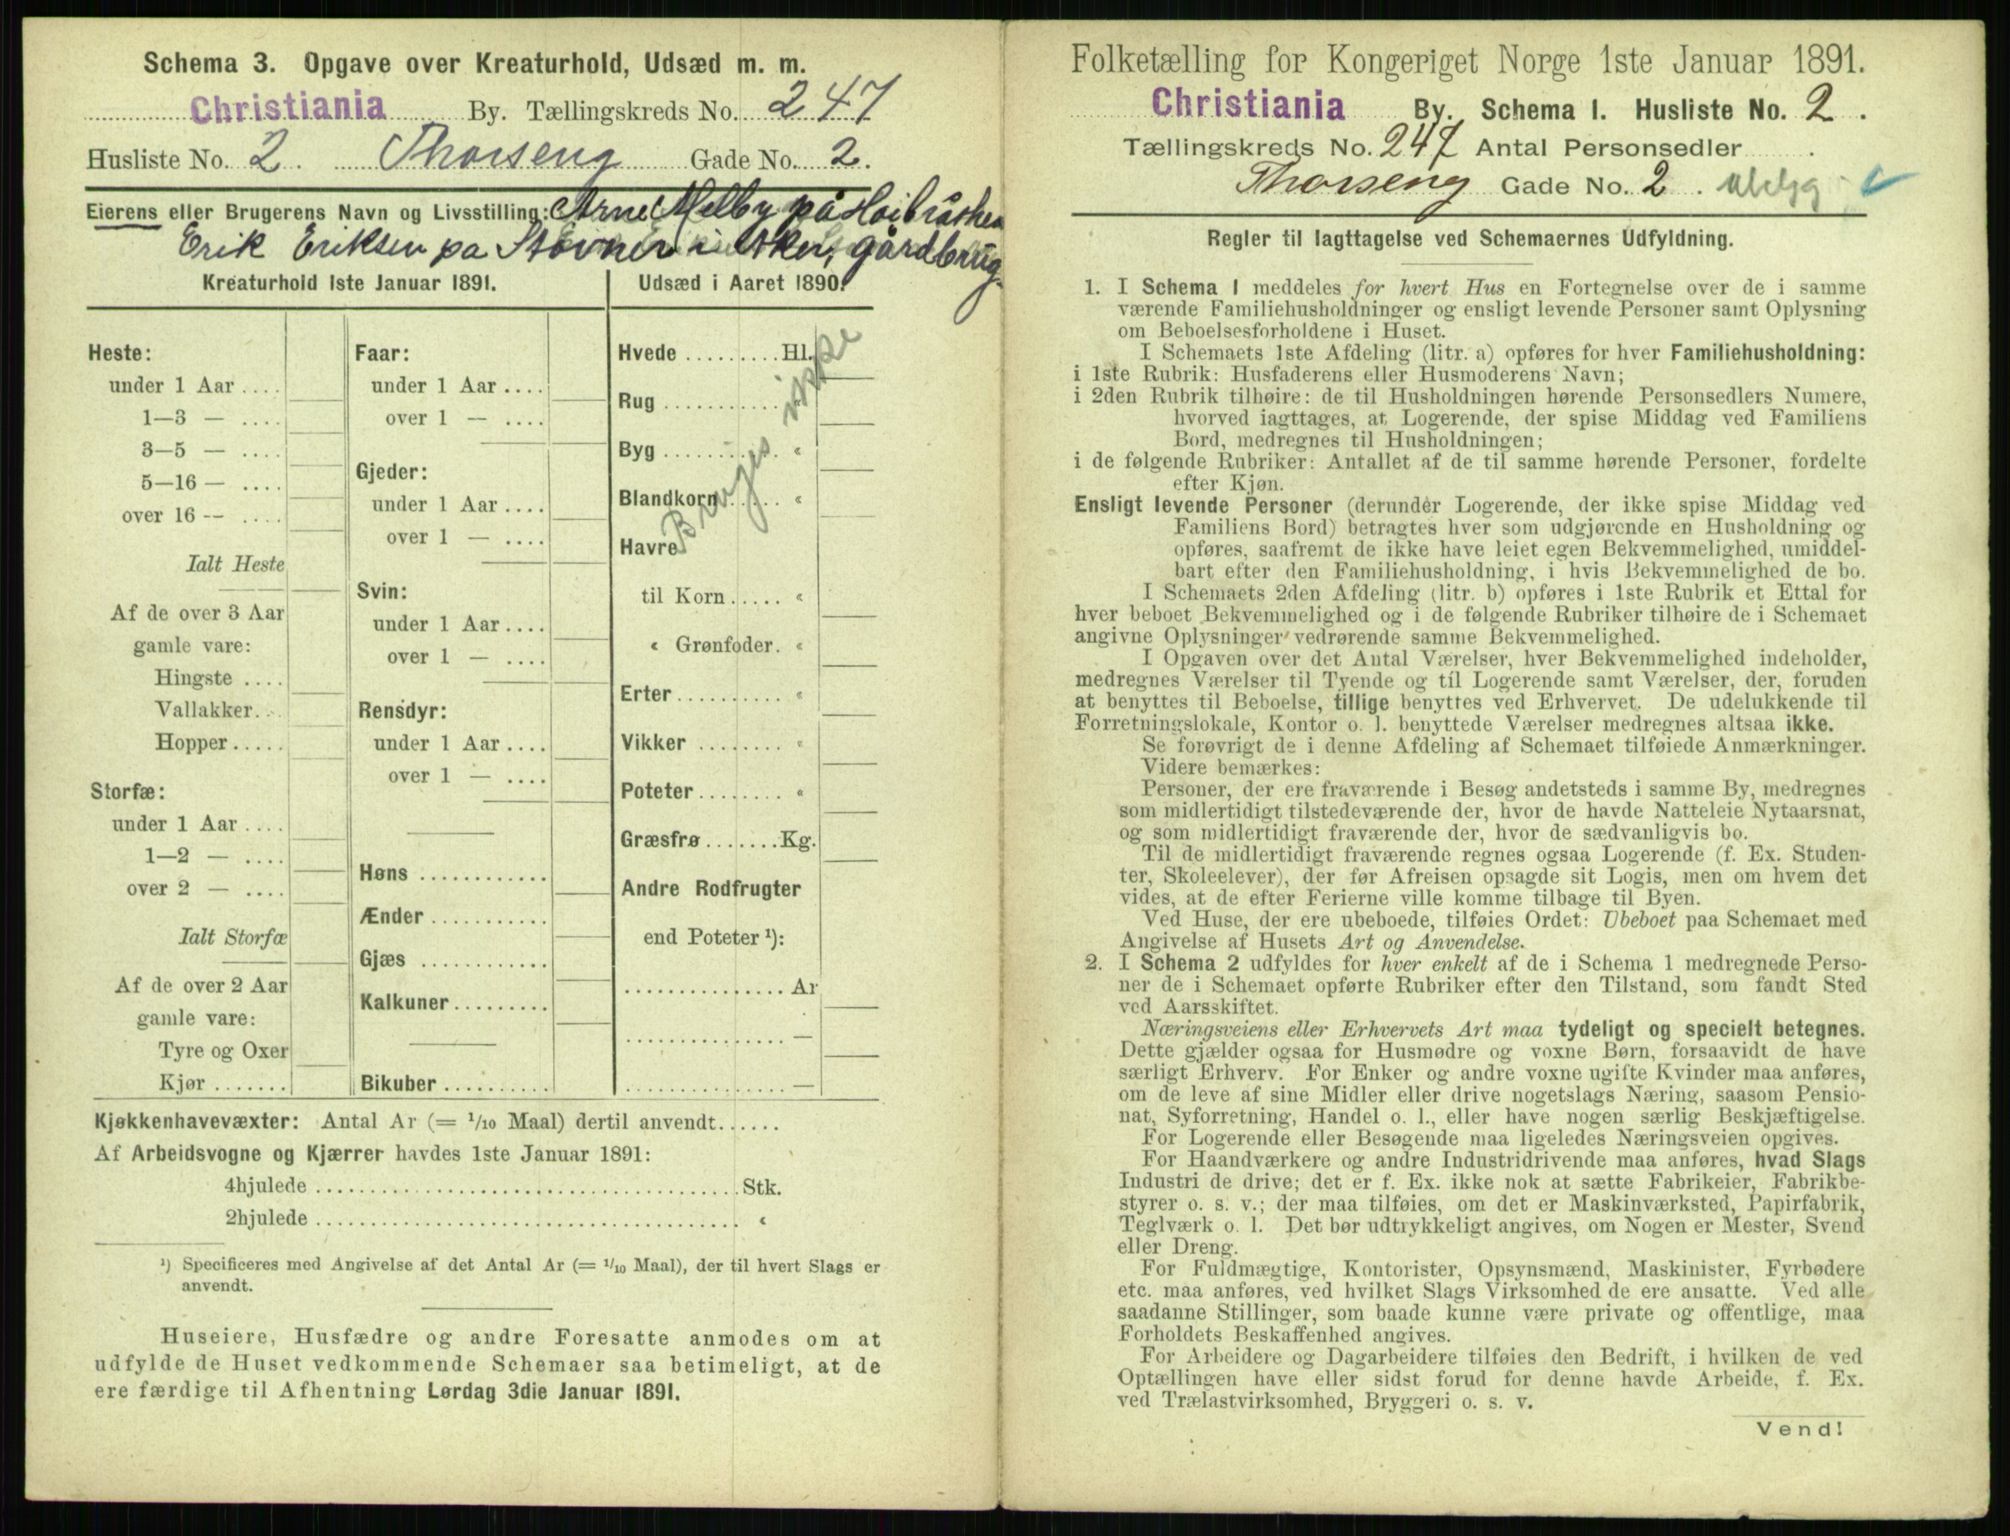 Schema 3. Opgave over Kreaturhold, Udsæd m. m.
Christiania By. Tællingskreds No. 247
Husliste No. 2. Thorseng Gade No. 2.
Eierens eller Brugerens Navn og Livsstilling: Arne Melby på
Erik Eriksen på Stovner i Asker, gårdbrug.
Kreaturhold 1ste Januar 1891.
Heste:
under 1 Aar ....
1—3 — ....
3—5 — ....
5—16 — ....
over 16 -- ....
Ialt Heste
Af de over 3 Aar
gamle vare:
Hingste ....
Vallakker...
Hopper.....
Storfæ:
under 1 Aar ....
1—2 — ....
over 2 — ....
Ialt Storfæ
Af de over 2 Aar
gamle vare:
Tyre og Oxer
Kjør .......
Faar:
under 1 Aar ....
over 1 — ....
Gjeder:
under 1 Aar ....
over 1 — ....
Svin:
under 1 Aar ....
over 1 — ....
Rensdyr:
under 1 Aar ....
over 1 — ....
Høns ............
Ænder ...........
Gjæs ............
Kalkuner.........
Bikuber ..........
Udsæd i Aaret 1890.
Hvede .........Hl.
Rug ........... «
Byg ........... «
Blandkorn...... «
Havre
til Korn..... «
« Grønfoder. «
Erter.......... «
Vikker ........ «
Poteter........ «
Græsfrø .......Kg.
Andre Rodfrugter
end Poteter ¹):
............... Ar
............... —
............... —
Bruges ikke
Kjøkkenhavevæxter: Antal Ar (= 1/10 Maal) dertil anvendt......
Af Arbeidsvogne og Kjærrer havdes 1ste Januar 1891:
4hjulede ....................................... Stk.
2hjulede ....................................... «
¹) Specificeres med Angivelse af det Antal Ar (= 1/10 Maal), der til hvert Slags er
anvendt.
Huseiere, Husfædre og andre Foresatte anmodes om at
udfylde de Huset vedkommende Schemaer saa betimeligt, at de
ere færdige til Afhentning Lørdag 3die Januar 1891.
Folketælling for Kongeriget Norge 1ste Januar 1891.
Christiania By. Schema I. Husliste No. 2.
Tællingskreds No. 247 Antal Personsedler .
Thorseng Gade No. 2.
Regler til Iagttagelse ved Schemaernes Udfyldning.
1. I Schema 1 meddeles for hvert Hus en Fortegnelse over de i samme
værende Familiehusholdninger og ensligt levende Personer samt Oplysning
om Beboelsesforholdene i Huset.
I Schemaets 1ste Afdeling (litr. a) opføres for hver Familiehusholdning:
i 1ste Rubrik: Husfaderens eller Husmoderens Navn;
i 2den Rubrik tilhøire: de til Husholdningen hørende Personsedlers Numere,
hvorved iagttages, at Logerende, der spise Middag ved Familiens
Bord, medregnes til Husholdningen;
i de følgende Rubriker: Antallet af de til samme hørende Personer, fordelte
efter Kjøn.
Ensligt levende Personer (derunder Logerende, der ikke spise Middag ved
Familiens Bord) betragtes hver som udgjørende en Husholdning og
opføres, saafremt de ikke have leiet egen Bekvemmelighed, umiddel-
bart efter den Familiehusholdning, i hvis Bekvemmelighed de bo.
I Schemaets 2den Afdeling (litr. b) opføres i 1ste Rubrik et Ettal for
hver beboet Bekvemmelighed og i de følgende Rubriker tilhøire de i Schemaet
angivne Oplysninger vedrørende samme Bekvemmelighed.
I Opgaven over det Antal Værelser, hver Bekvemmelighed indeholder,
medregnes Værelser til Tyende og til Logerende samt Værelser, der, foruden
at benyttes til Beboelse, tillige benyttes ved Erhvervet. De udelukkende til
Forretningslokale, Kontor o. l. benyttede Værelser medregnes altsaa ikke.
Se forøvrigt de i denne Afdeling af Schemaet tilføiede Anmærkninger.
Videre bemærkes:
Personer, der ere fraværende i Besøg andetsteds i samme By, medregnes
som midlertidigt tilstedeværende der, hvor de havde Natteleie Nytaarsnat,
og som midlertidigt fraværende der, hvor de sædvanligvis bo.
Til de midlertidigt fraværende regnes ogsaa Logerende (f. Ex. Studen-
ter, Skoleelever), der før Afreisen opsagde sit Logis, men om hvem det
vides, at de efter Ferierne ville komme tilbage til Byen.
Ved Huse, der ere ubeboede, tilføies Ordet: Ubeboet paa Schemaet med
Angivelse af Husets Art og Anvendelse.
2. I Schema 2 udfyldes for hver enkelt af de i Schema 1 medregnede Perso-
ner de i Schemaet opførte Rubriker efter den Tilstand, som fandt Sted
ved Aarsskiftet.
Næringsveiens eller Erhvervets Art maa tydeligt og specielt betegnes.
Dette gjælder ogsaa for Husmødre og voxne Børn, forsaavidt de have
særligt Erhverv. For Enker og andre voxne ugifte Kvinder maa anføres,
om de leve af sine Midler eller drive nogetslags Næring, saasom Pensio-
nat, Syforretning, Handel o. l., eller have nogen særlig Beskjæftigelse.
For Logerende eller Besøgende maa ligeledes Næringsveien opgives.
For Haandværkere og andre Industridrivende maa anføres, hvad Slags
Industri de drive; det er f. Ex. ikke nok at sætte Fabrikeier, Fabrikbe-
styrer o. s. v.; der maa tilføies, om det er Maskinværksted, Papirfabrik,
Teglværk o. l. Det bør udtrykkeligt angives, om Nogen er Mester, Svend
eller Dreng.
For Fuldmægtige, Kontorister, Opsynsmænd, Maskinister, Fyrbødere
etc. maa anføres, ved hvilket Slags Virksomhed de ere ansatte. Ved alle
saadanne Stillinger, som baade kunne være private og offentlige, maa
Forholdets Beskaffenhed angives.
For Arbeidere og Dagarbeidere tilføies den Bedrift, i hvilken de ved
Optællingen have eller sidst forud for denne havde Arbeide, f. Ex.
ved Trælastvirksomhed, Bryggeri o. s. v.
Vend!